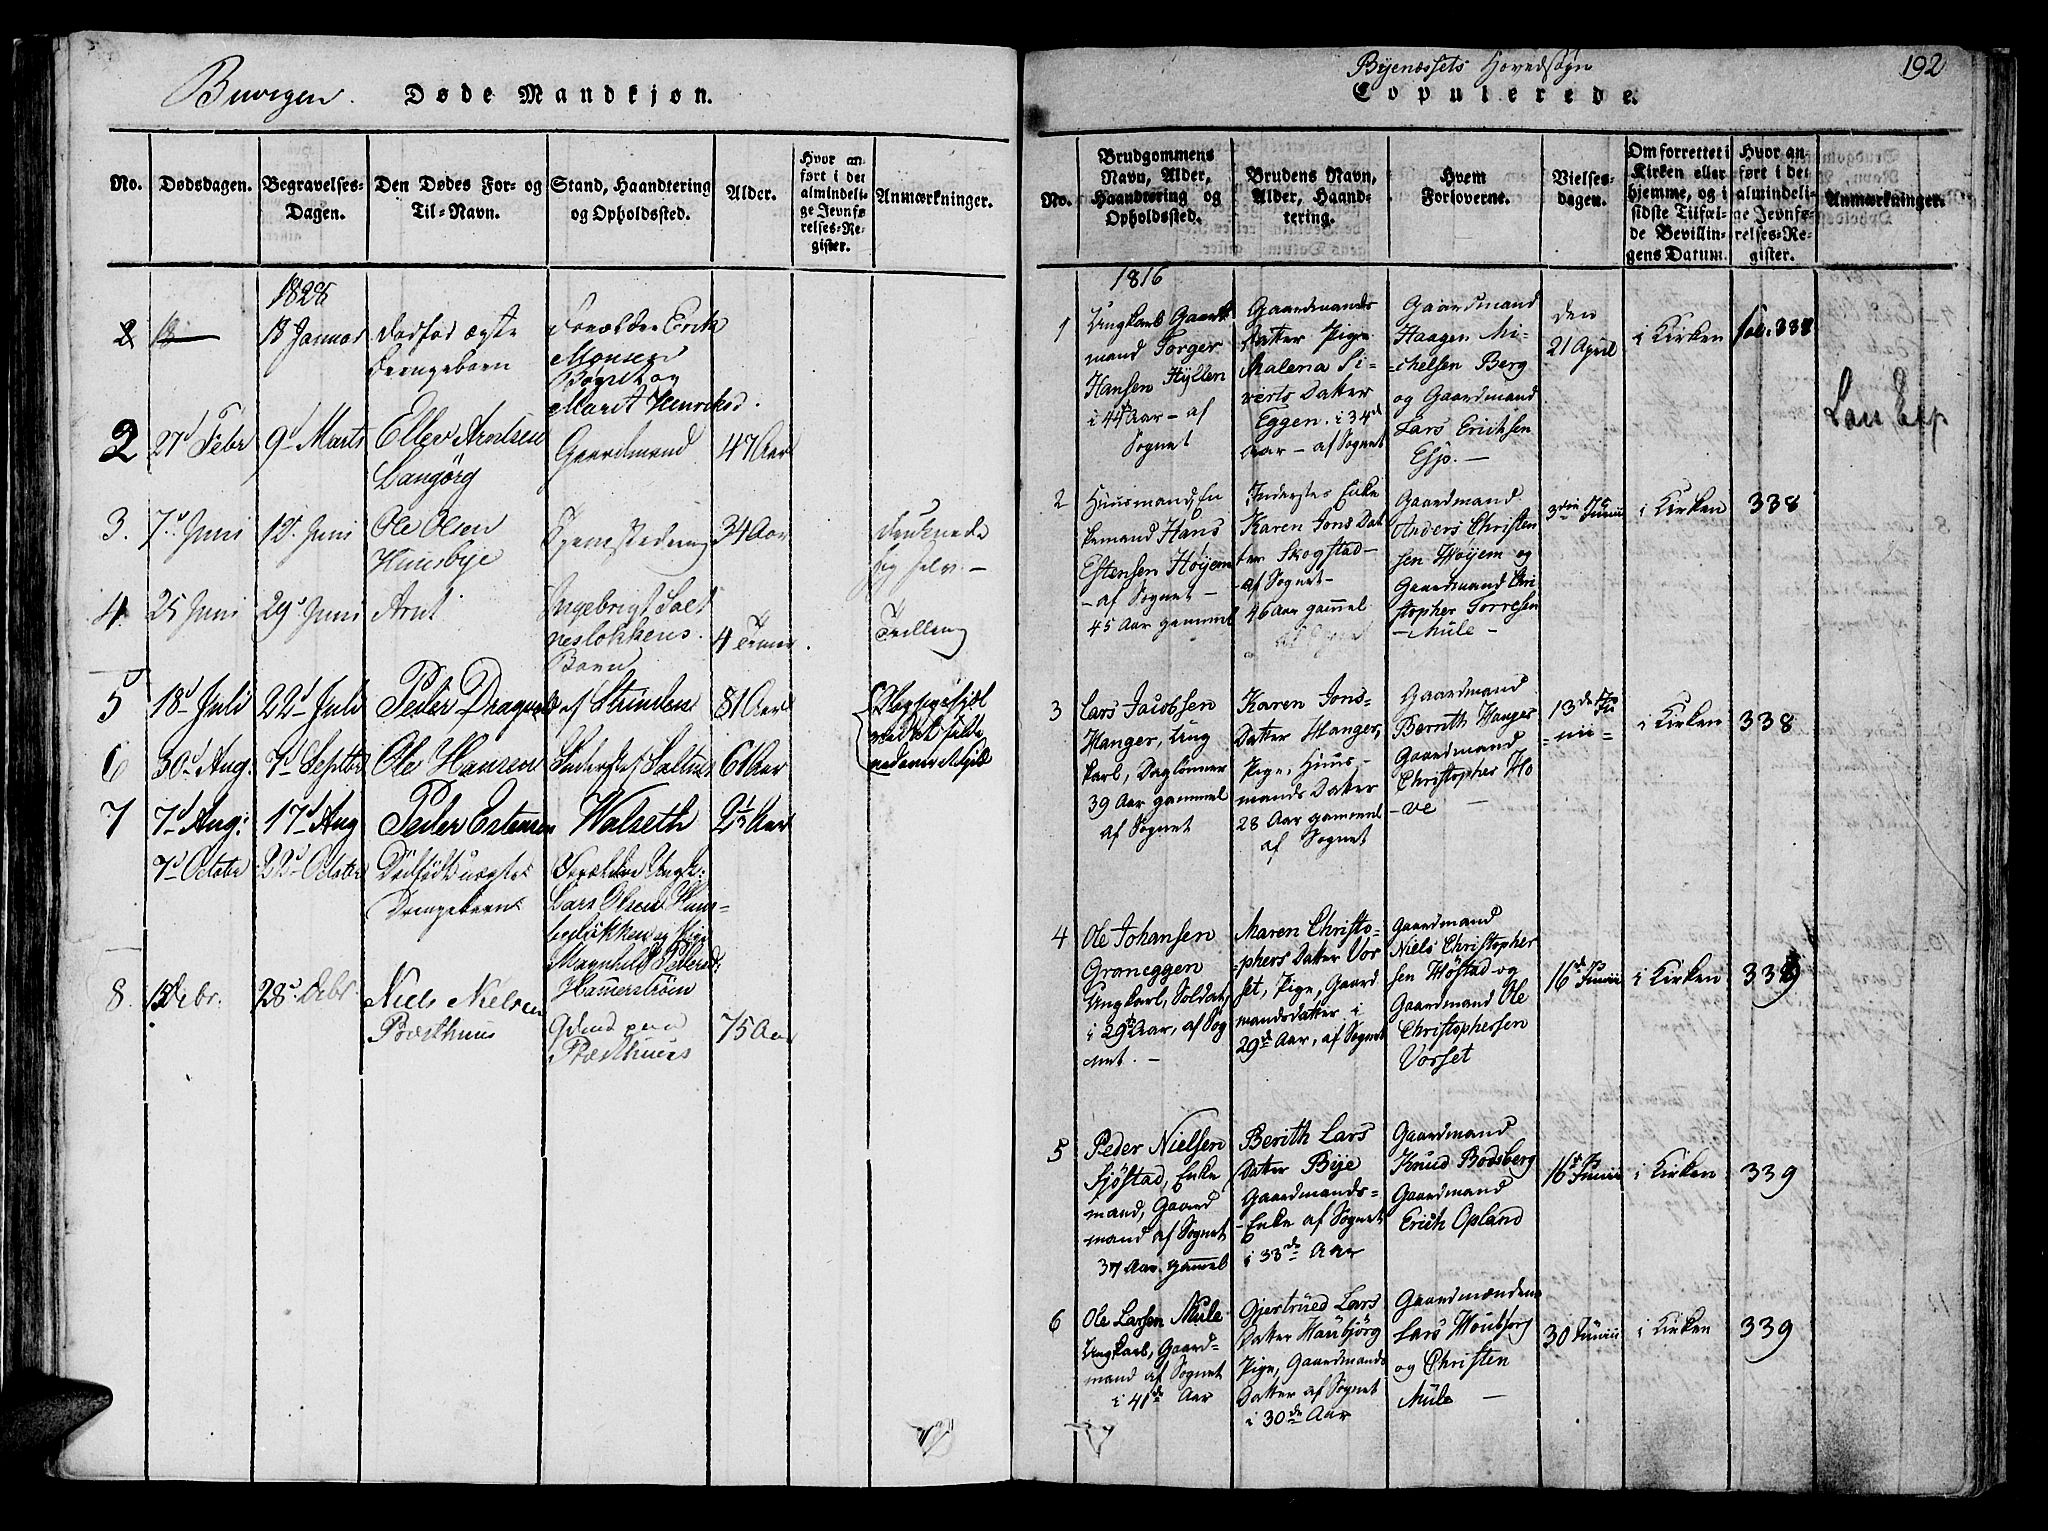 Buvigen. Døde Mandkjøn.
No.
Dødsdagen.
Begravelses-
Dagen.
Den Dødes For- og
Til-Navn.
Stand, Haandtering
og Opholdssted.
Alder.
Hvor an-
ført i det
almindeli-
ge Jevnfø-
relses-Re-
gister.
Anmærkninger.
1828
2 18 18 Januar
Dødfød ægte
Drengebarn
Forældre Erik
Monsen
Marit Henriksd.
2 27d Febr 9d Marts
Ellev Arntsen
Langörg
Gaardmand
47 Aar
3. 7d Juni 12d Juni
Ole Olsen
Huusbye
34 Aar
druknede
sig selv. -
4. 25 Juni 29d Juni
Arnt
Ingebrigt Salt
neslökkens
Barn
4 Timer.
Trilling
5 18d Juli 22d Juli
Peder Dragsed
af Strinden
81 Aar
6 30d Aug: 7d Septbr
Ole Hansen
61 Aar
7 7d Aug: 17d Aug
Peder Estensen
Walseth
2½ Aar
7d Octobr 22d Octobr
Dödfödt uægte
Drengebarn
Forældre Ungk:
Lars Olsen Huus-
byløkken og Pige
Magnhild Pedersd:
Hamerström
8. 28d Debr.
Niels Nielsen
Præsthuus
Præsthuus
75 Aar
Byenæssets Hovedsogn 192
Copulerede.
No.
Brudgommens
Navn, Alder,
Haandtering og
Opholdssted.
Brudens Navn,
Alder, Haand-
tering.
Hvem
Forloverne.
Vielses-
dagen.
Om forrettet i
Kirken eller
hjemme, og i
sidste Tilfæl-
de Bevillin-
gens Datum.
Hvor an-
ført i det
almindeli-
ge Jevnfø-
relses-Re-
gister.
Anmærkninger.
1816
1
Ungkarl Gaard
mand Torger
Hansen Hyllen
i 44de Aar - af
Sognet
Gaardmands
Datter Pige
Malena Si-
verts Datter
Eggen. i 34de
Aar - af Sognet
Gaardmand
Haagen Mi-
-chelsen Berg
og Gaardmand
Lars Erichsen
Esp. -
den
21 April
i Kirken
fol. 338
Lars Esp
2
Huusmand, En
kemand Hans
Estensen Höyem
- af Sognet -
45 Aar gammel
Inderstes Enke
Karen Jons Dat
ter Skogstad -
af Sognet -
46 Aar gammel
Gaardmand
Anders Christen
sen Höyem og
Gaardmand Chri
stopher Torresen
- Mule -
3die Junii
i Kirken
338
3
Lars Jacobsen
Hanger, Ung
karl, Daglönner
39 Aar gammel
af Sognet
Karen Jons-
Datter Hanger,
Pige, Huus-
mands Datter
28 Aar gammel
af Sognet
Gaardmand
Bernth Hanger
Gaardmand
Christopher Ho
-ve -
13de Ju
-nii-
i Kirken
338
4
Ole Johansen
Graneggen
Ungkarl, Soldat,
i 29de Aar, af Sog
net. -
Maren Christo-
-phers Datter Vor
set, Pige, Gaard
mandsdatter i
29de Aar, af Sognet
Gaardmand
Niels Christopher
sen Höstad og
Gaardmand Ole
Christophersen
Vorset
16de Junii
i Kirken
339
5
Peder Nielsen
Sjöstad, Enke
mand, Gaard
mand af Sognet
37 Aar gammel
Berith Lars
Datter Bye
Gaardmands-
-Enke af Sognet
i 33de Aar
Gaardmand
Knud Bodsberg
Gaardmand
Erich Opland
16de Junii
i Kirken
339
6
Ole Larsen Mule
Ungkarl, Gaard-
mand af Sognet
i 41de Aar
Gjertrued Lars
Datter Haubjörg
Pige, Gaardmands
Datter af Sognet
i 30de Aar
Gaardmændene
Lars Houbjorg
og Christen
Mule -
30 Junii
i Kirken
339